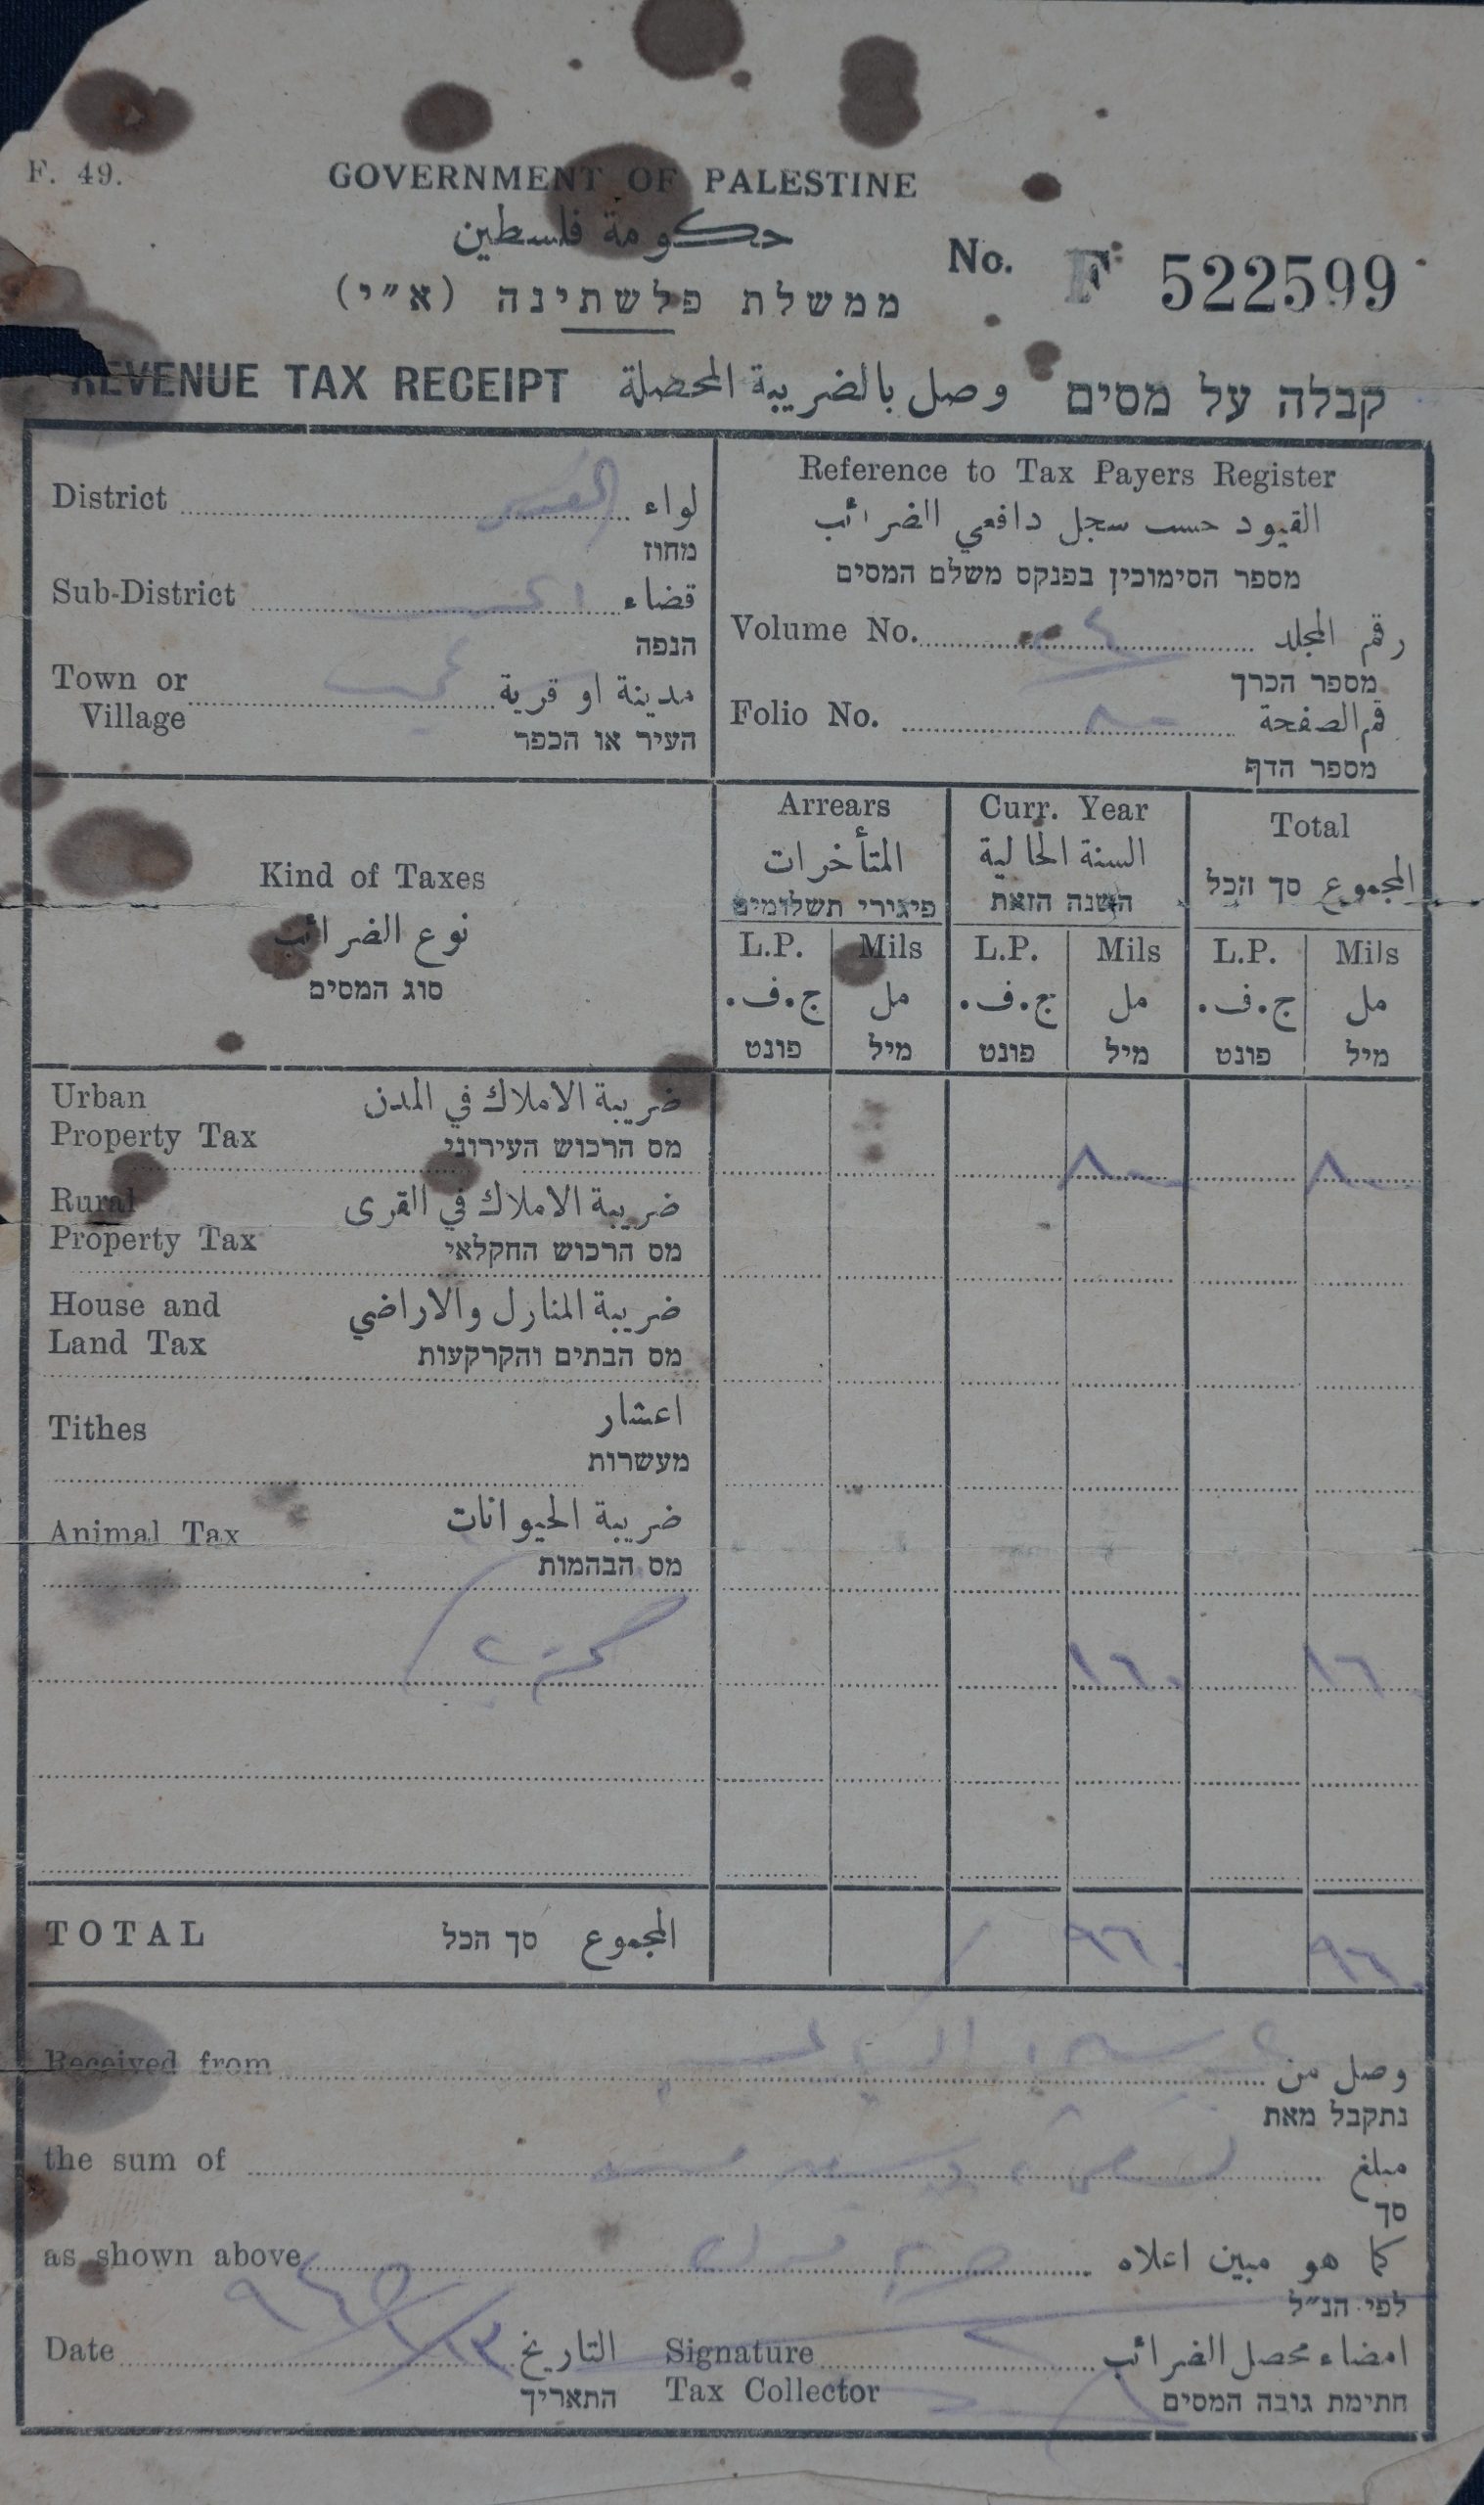 F. 49.
GOVERNMENT OF PALESTINE
حكومة فلسطين
ממשלת פלשתינה (א״י)
No. F 522599
REVENUE TAX RECEIPT وصل بالضريبة المحصلة קבלה על מסים
District لواء القدس
מחוז
Sub-District قضاء
הנפה
Town or Village مدينة او قرية
העיר או הכפר
Reference to Tax Payers Register
القيود حسب سجل دافعي الضرائب
מספר הסימוכין בפנקס משלם המסים
Volume No. ٤ رقم المجلد
מספר הכרך
Folio No. ٨٠ قم الصفحة
מספר הדף
Kind of Taxes
نوع الضرائب
סוג המסים
Arrears
المتأخرات
פיגורי תשלומים
Curr. Year
السنة الحالية
השנה הזאת
Total
المجموع סך הכל
L.P. Mils L.P. Mils L.P. Mils
ج.ف. مل ج.ف. مل ج.ف. مل
פונט מיל פונט מיל פונט מיל
Urban Property Tax ضريبة الاملاك في المدن
מס הרכוש העירוני
٨٠٠ ٨٠٠
Rural Property Tax ضريبة الاملاك في القرى
מס הרכוש החקלאי
House and Land Tax ضريبة المنازل والاراضي
מס הבתים והקרקעות
Tithes اعشار
מעשרות
Animal Tax ضريبة الحيوانات
מס הבהמות
١٦٠ ١٦٠
TOTAL المجموع סך הכל ٩٦٠ ٩٦٠
Received from وصل من
נתקבל מאת
the sum of مبلغ
סך
as shown above كما هو مبين اعلاه
לפי הנ״ל
Date التاريخ
התאריך
Signature Tax Collector امضاء محصل الضرائب
חתימת גובה המסים